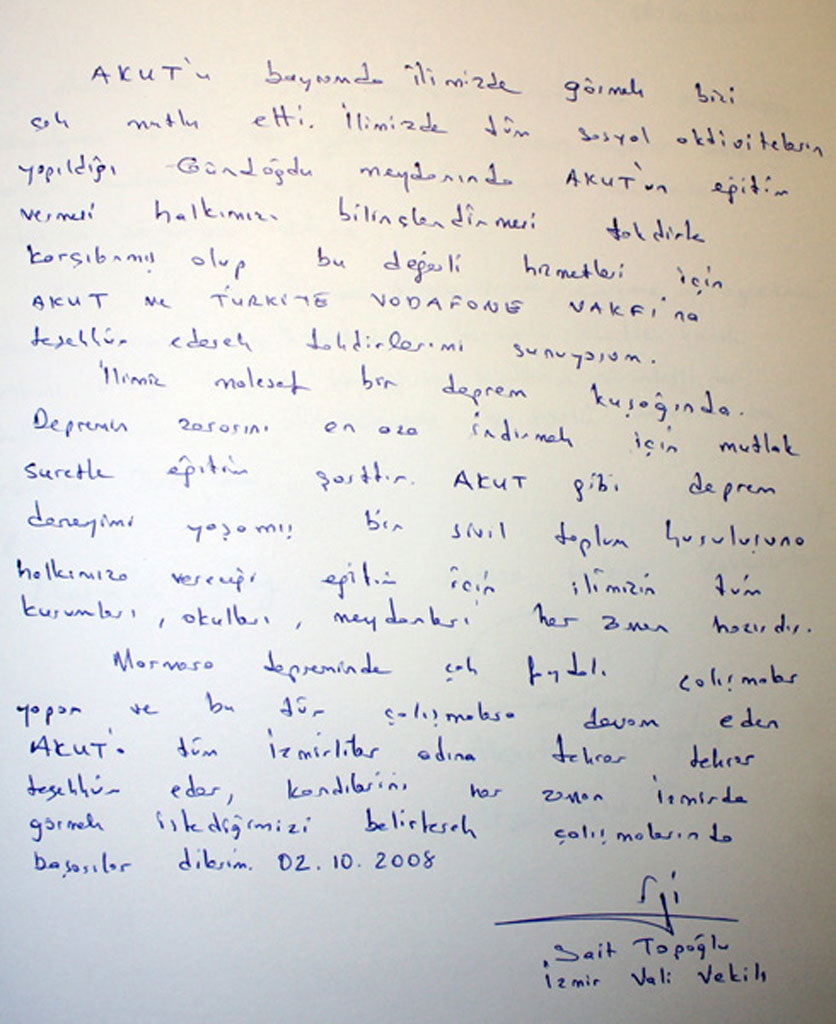 AKUT'u bayramda ilimizde görmek bizi
çok mutlu etti. İlimizde tüm sosyal aktivitelerin
yapıldığı Gündoğdu meydanında AKUT'un eğitim
vermesi halkımızı bilinçlendirmesi takdirle
karşılanmış olup bu değerli hizmetleri için
AKUT ve TÜRKİYE VODAFONE VAKFI'na
teşekkür ederek takdirlerimi sunuyorum.
İlimiz malesef bir deprem kuşağında.
Depremin zararını en aza indirmek için mutlak
suretle eğitim şarttır. AKUT gibi deprem
deneyimi yaşamış bir sivil toplum kuruluşuna
halkımıza vereceği eğitim için ilimizin tüm
kurumları, okulları, meydanları her zaman hazırdır.
Marmara depreminde çok faydalı çalışmalar
yapan ve bu tür çalışmalara devam eden
AKUT'a tüm İzmirliler adına tekrar tekrar
teşekkür eder, kendilerini her zaman İzmirde
görmek istediğimizi belirterek çalışmalarında
başarılar dilerim. 02.10.2008
Sait Topoğlu
İzmir Vali Vekili